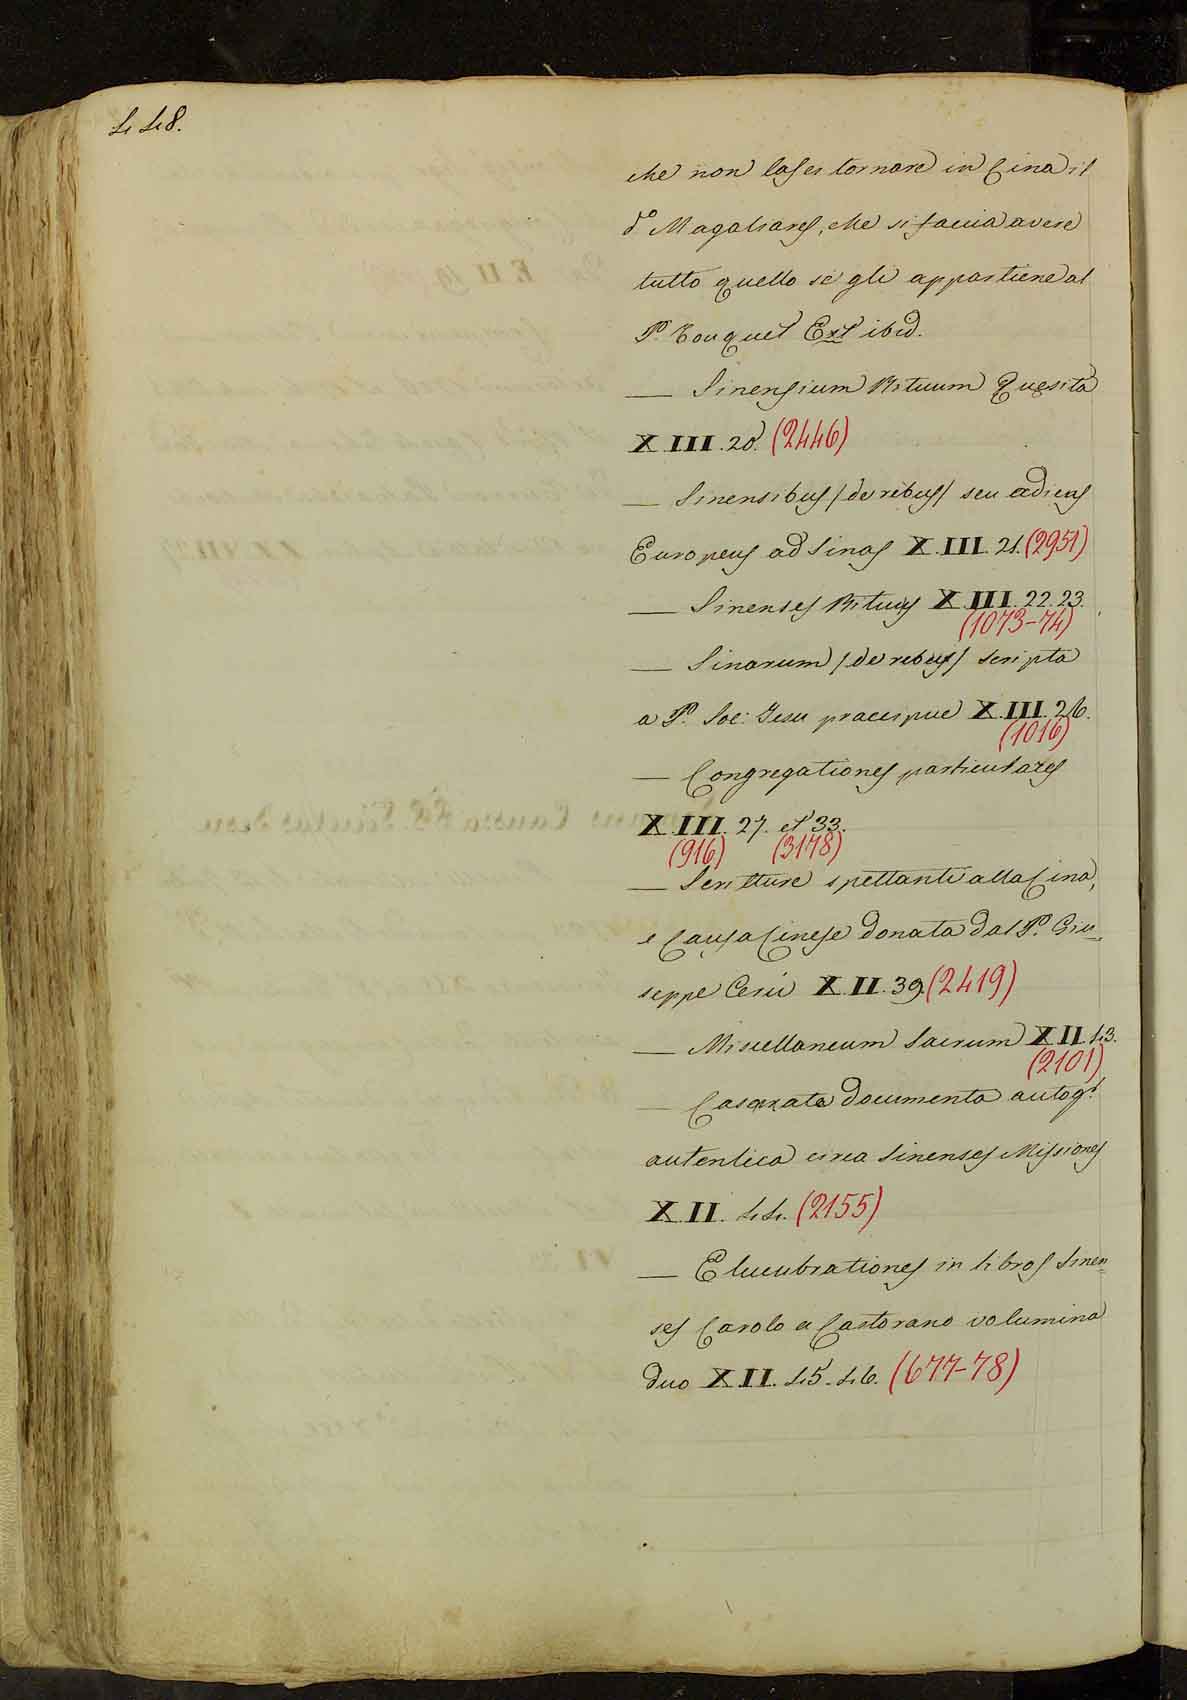 448.
che non lasci tornare in Cina il
d.o Magaliares, che si faccia avere
tutto quello se gli appartiene al
P. Fouquet Ext ibid.
— Sinensium Rituum Quęsita
X.III.20. (2446)
— Sinensibus /de rebus/ seu adiens
Europeus ad Sinas X.III.21. (2951)
— Sinenses Ritus X.III.22.23.
(1073-74)
— Sinarum /de rebus/ scripta
a P. Soc: Jesu praecipue X.III.26.
(1016)
— Congregationes particulares
X.III. 27. et 33.
(916) (3178)
— Scritture spettanti alla Cina,
e Causa Cinese donata dal P. Giu-
seppe Cerù X.II.39. (2419)
— Miscellaneum Sacrum X.II.43.
(2101)
— documenta autog.
autentica circa Sinenses Missiones
X.II. 44. (2155)
— Elucubrationes in libros Sinen-
ses Carolo a Castorano volumina
duo X.II. 45. 46. (677-78)